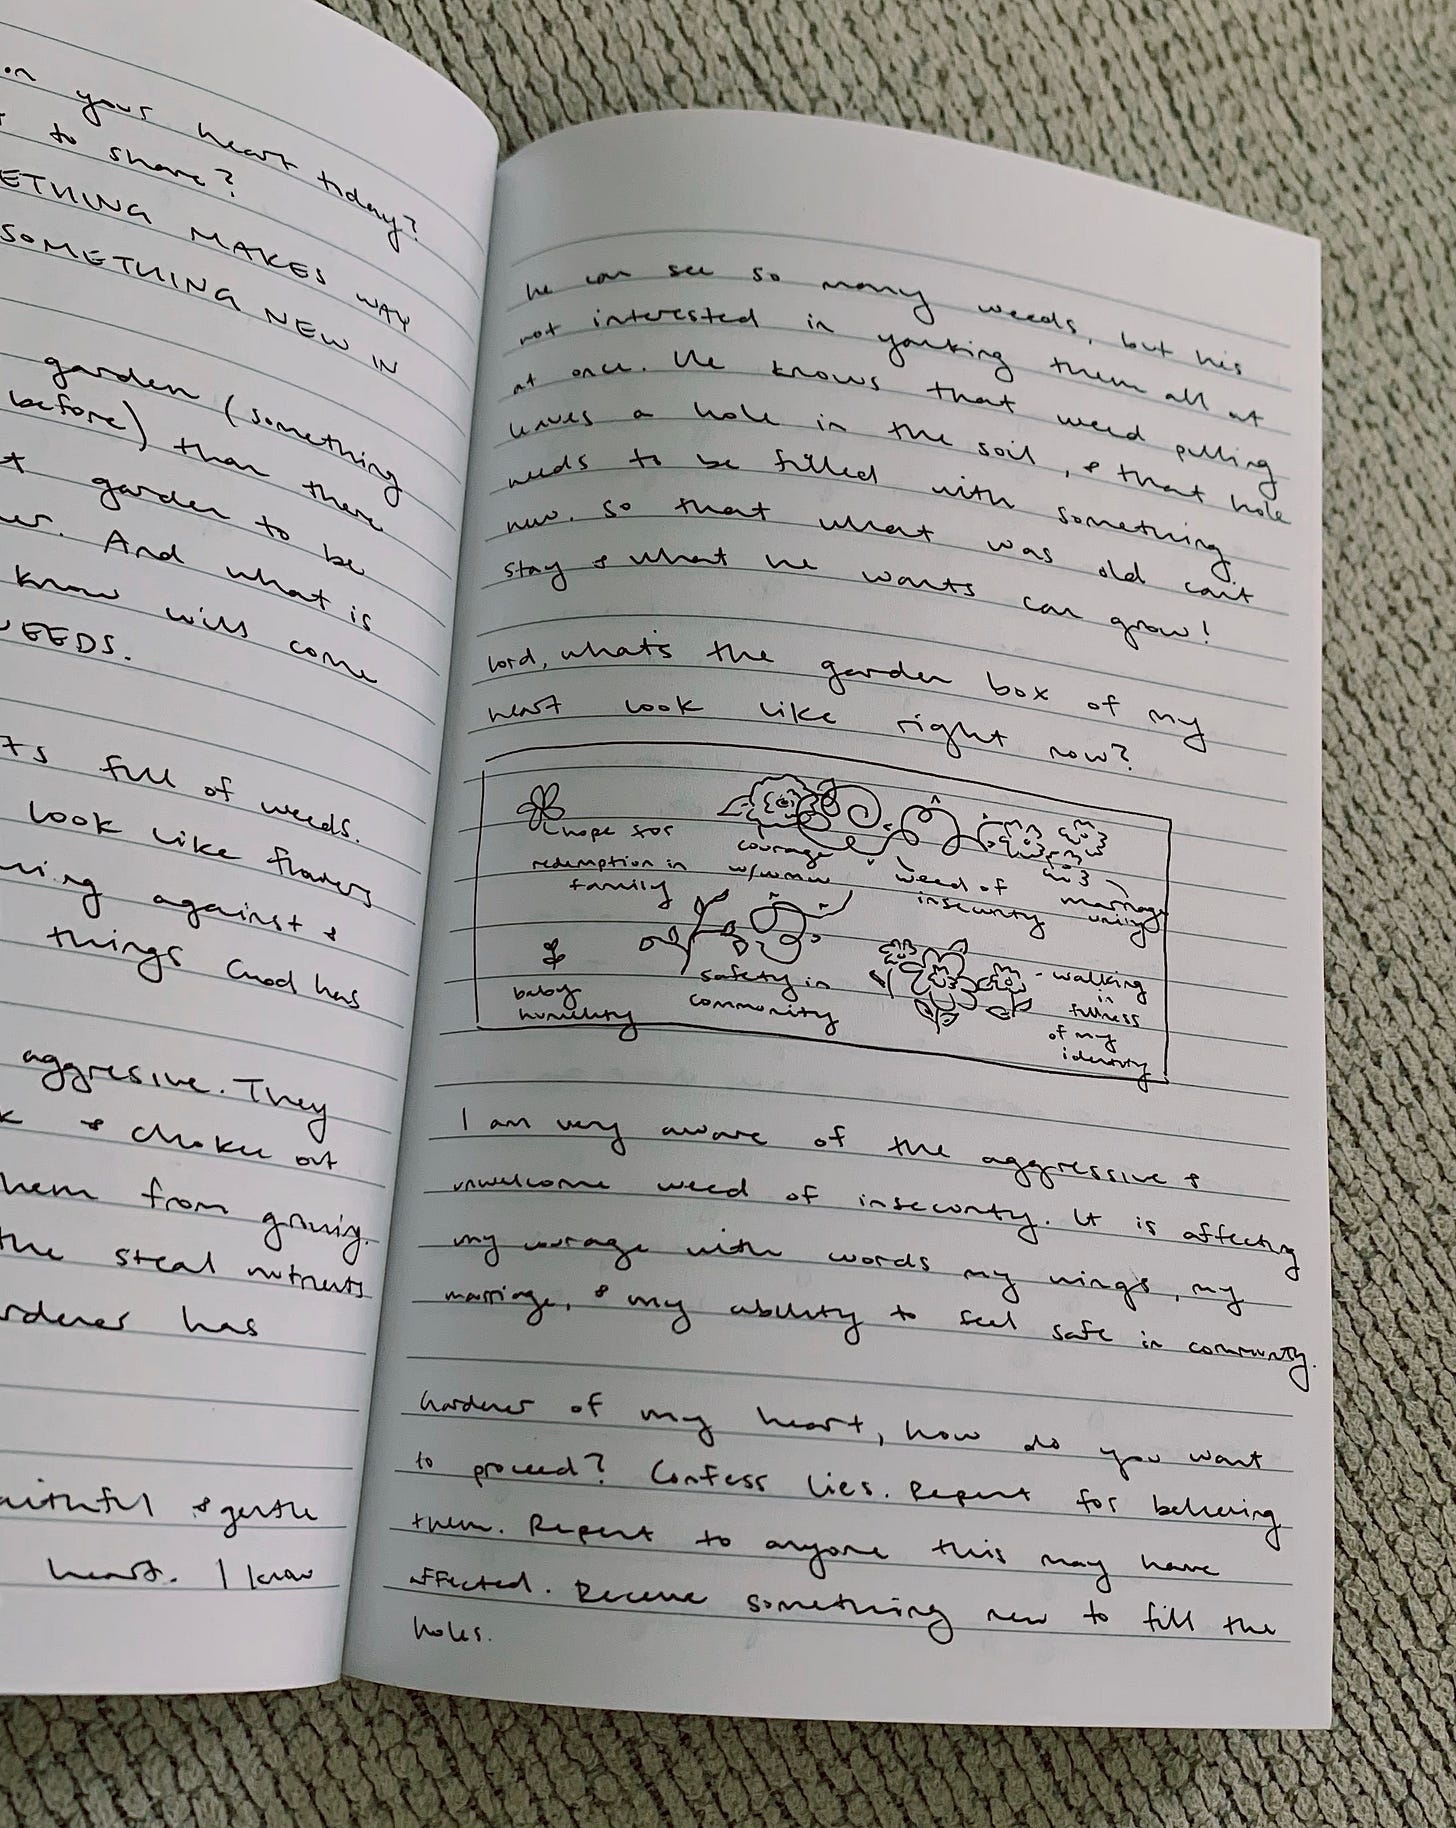 on your heart today?
to share?
ETHING MAKES WAY
SOMETHING NEW IN
garden (something
before) than there
garden to be
And what is
know will come
WEEDS.
full of weeds.
look like flowers
against &
things God has
aggresive. They
& choke out
them from growing.
the steal nutrients
has
aithful & gentle
heart. I know
he can see so many weeds, but his
not interested in yanking them all at
at once. He knows that weed pulling
leaves a hole in the soil, & that hole
needs to be filled with something
new. so that what was old can't
stay & what he wants can grow!
lord, what's the garden box of my
heart look like right now?
hope for
redemption in
family
courage
w/
weed of
insecurity
marriage
unity
baby
humility
safety in
community
- walking
in
fullness
of my
identity
I am very aware of the aggressive &
unwelcome weed of insecurity. It is affecting
my courage with words my wings, my
marriage, & my ability to feel safe in community.
Gardener of my heart, how do you want
to proceed? Confess lies. Repent for believing
them. Repent to anyone this may have
affected. Receive something new to fill the
holes.